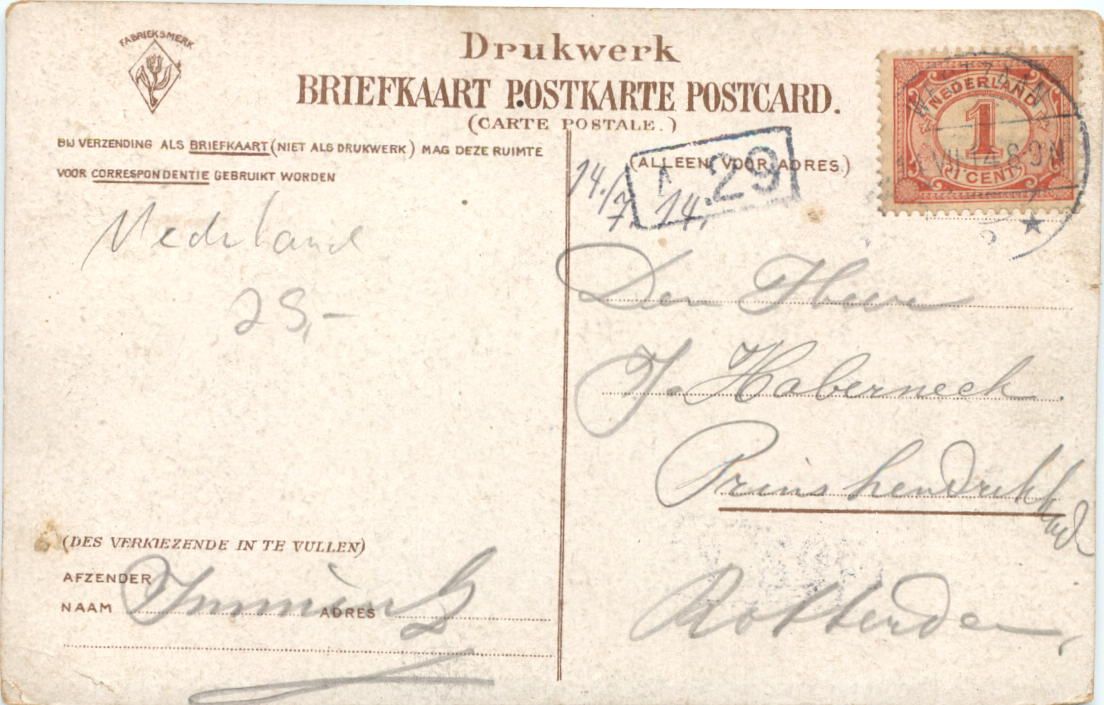 FABRIEKSMERK
Drukwerk
BRIEFKAART POSTKARTE POSTCARD.
(CARTE POSTALE.)
BIJ VERZENDING ALS BRIEFKAART (NIET ALS DRUKWERK) MAG DEZE RUIMTE
VOOR CORRESPONDENTIE GEBRUIKT WORDEN
(ALLEEN VOOR ADRES)
29
14./7. 14.
NEDERLAND
1
CENT
14 8-9N
Nederland
25,-
Den Heer
J. Haberneck
Prins hendrik kade
Rotterdam
(DES VERKIEZENDE IN TE VULLEN)
AFZENDER
NAAM
ADRES